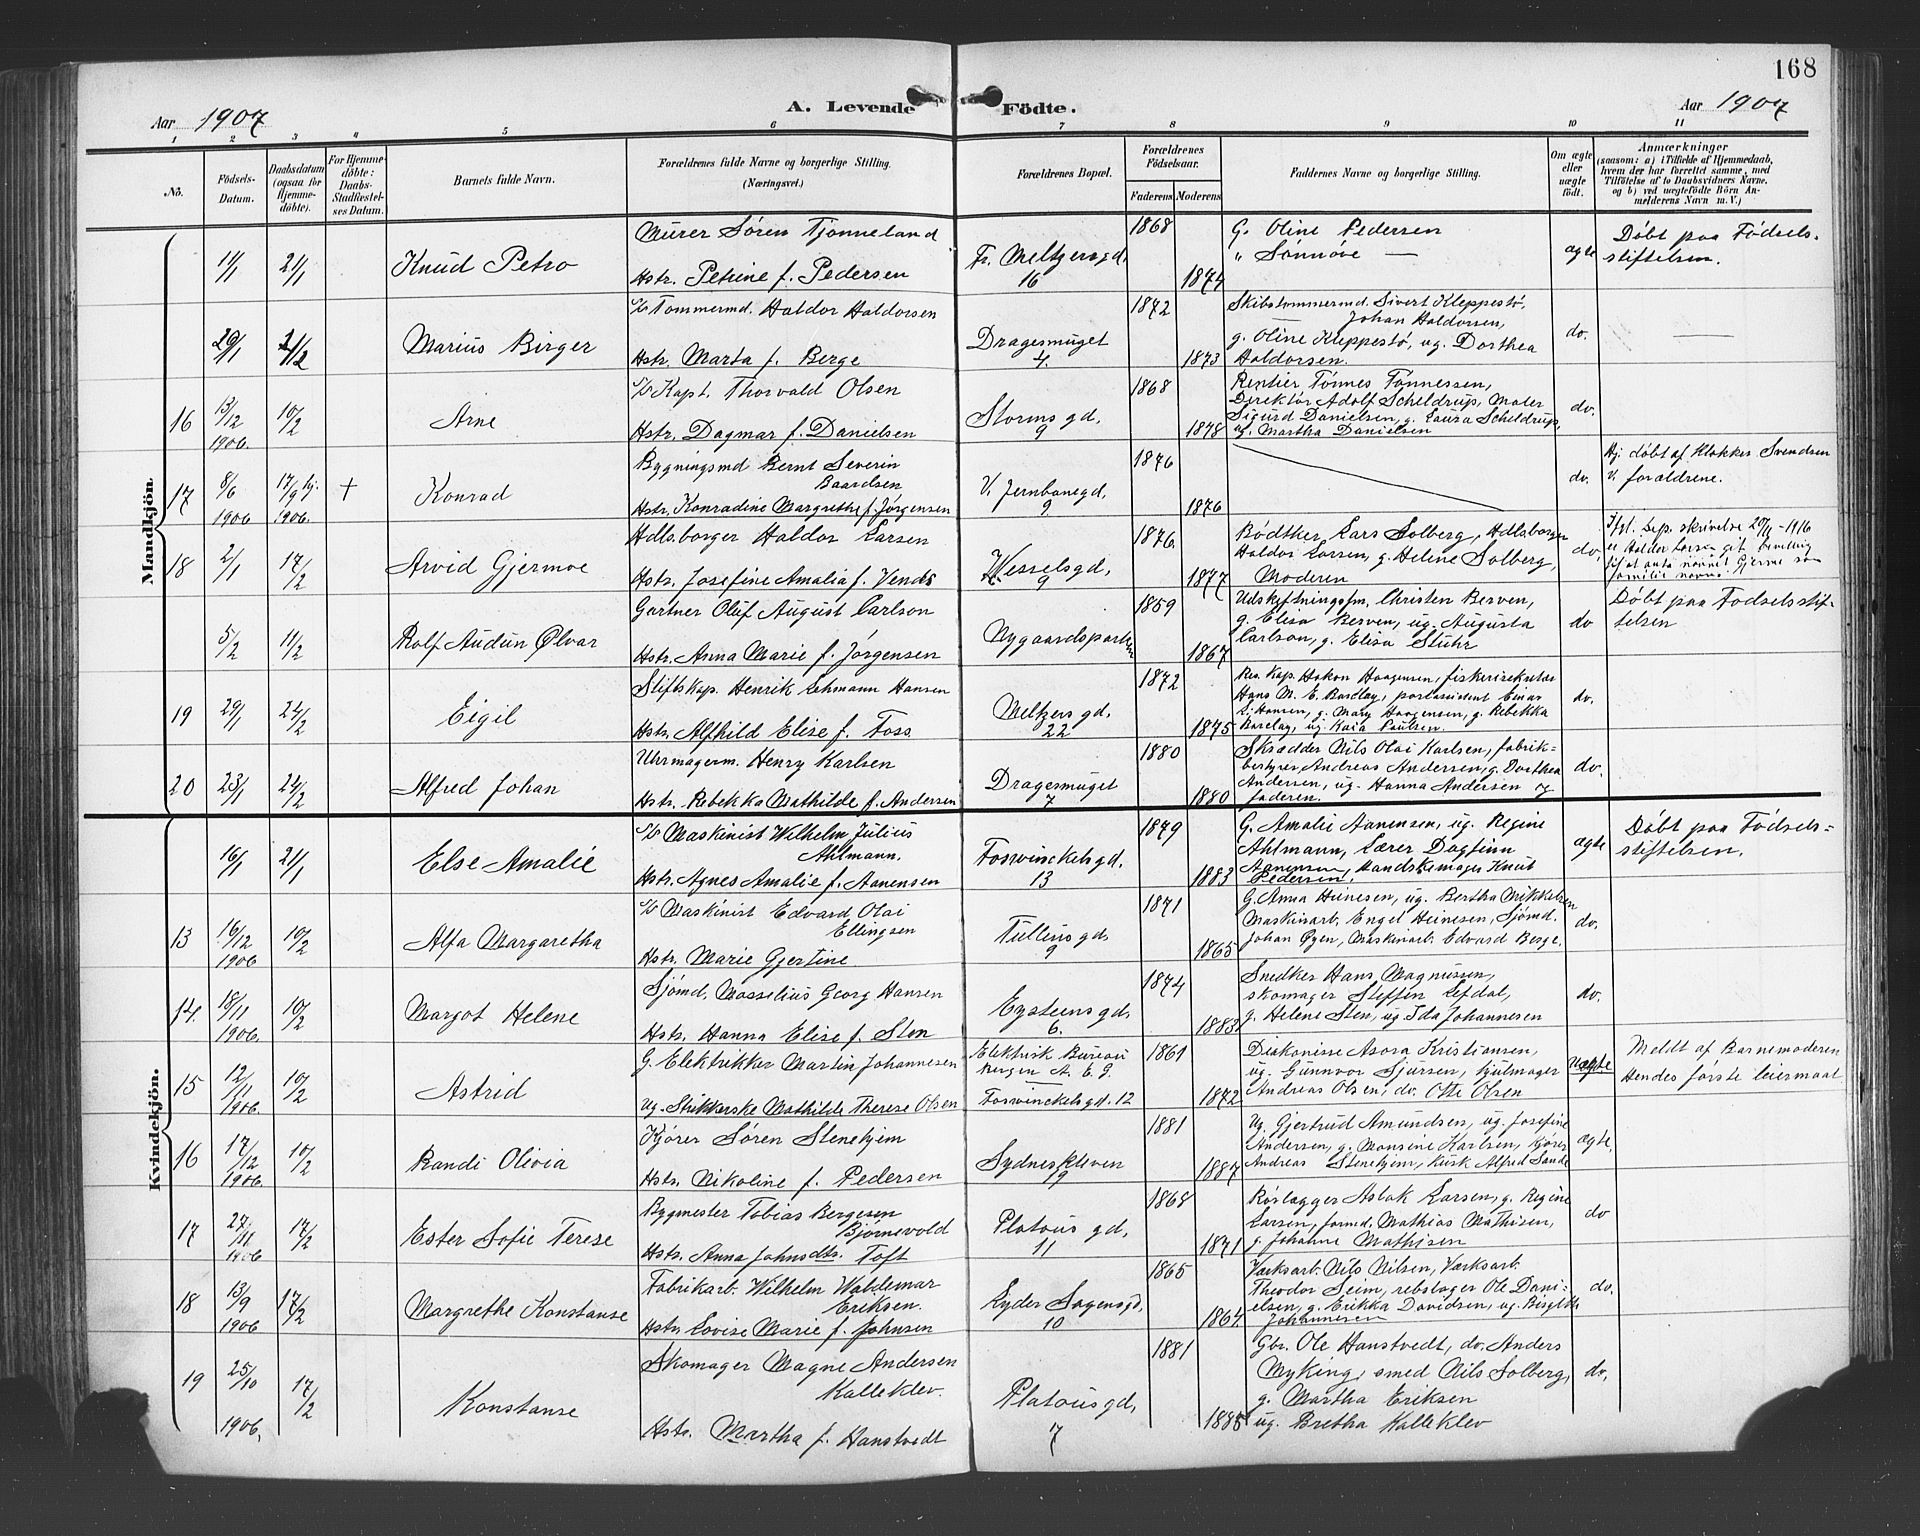 168
Aar 1907
A. Levende Födte.
Aar 1907
1 2 3 4 5 6 7 8 9 10 11
No.
Födsels-Datum.
Daabsdatum (ogsaa for Hjemme-döbte).
For Hjemme-döbte: Daabs-Stadfæstel-ses Datum.
Barnets fulde Navn.
Forældrenes fulde Navne og borgerlige Stilling. (Næringsvei.)
Forældrenes Bopæl.
Forældrenes Födselsaar.
Faderens Moderens
Faddernes Navne og borgerlige Stilling.
Om ægte eller uægte födt.
Anmærkninger
(saasom: a) i Tilfælde af Hjemmedaab,
hvem der har forrettet samme, med
Tilföielse af to Daabsvidners Navne,
og b) ved uægtefödte Börn An-
melderens Navn m. V.)
Mandkjön.
11/1 21/1 Knud Petro
Murer Søren Tjønneland
Hstr. Petrine f. Pedersen
Fr. Meltzersgd. 16
1868 1874
G. Oline Pedersen
" Sønnøve —
ægte
Døbt paa Fødsels-
stiftelsen.
29/1 2/2 Marius Birger
Tømmermd. Haldor Haldorsen
Hstr. Marta f. Berge
Dragesmuget 4.
1872 1873
Skibstømmermd. Sivert Kleppestø,
Johan Haldorsen,
g. Oline Kleppestø, ug. Dorthea
Haldorsen.
do. —
16 13/12 1906. 10/2 Arne
Kapt. Thorvald Olsen
Hstr. Dagmar f. Danielsen
Stormsgd. 9
1868 1878
Rentier Tønnes Tønnessen,
Direktør Adolf Scheldrup, Mater
Sigurd Danielsen, g. Laura Scheldrup,
ug. Martha Danielsen
do.
17 8/6 1906 17/9 hj. 1906. + Konrad
Bygningsmd Bernt Severin
Baardsen
Hstr. Konradine Margrethe f. Jørgensen
V. Jernbanegd. 9
1876 1876
do.
Hj. døbt af Klokker Svendsen
V. forældrene.
18 2/1 17/2 Arvid Gjermoe
Hdlsborger Haldor Larsen
Hstr. Josefine Amalia f. Vends
Wesselsgd. 9
1876. 1877
Bødtker Lars Solberg, Hdlsborger
Haldor Larsen, g. Helene Solberg,
Moderen
do.
Ifgl. Dep. skrivelse - 1916
er Haldor Larsen git bevilling
til at anta navnet Gjerme som
familie navn.
5/2 11/2 Rolf Audun Ølvar
Gartner Oluf August Carlson
Hstr. Anna Marie f. Jørgensen
Nygaardsparken
1859 1867
Udskiftningsfm. Christen Berven,
g. Elisa Berven, ug. Augusta
Carlson, g. Elisa Stuhr
do
Døbt paa Fødselsstif-
telsen
19 29/1 24/2 Eigil
Stiftskap. Henrik Lehmann Hansen
Hstr. Alfhild Elise f. Foss
Meltzersgd. 22
1872 1875
Res. Kap. Hakon Haagensen, fiskerisekretær
Hans M. E. Barclay, postassistent Einar
L. Hansen, g. Mary Haagensen, g. Rebekka
Barclay, ug. Kaia Paulsen.
do.
20 23/1 24/2 Alfred Johan
Uhrmagerm. Henry Karlsen
Hstr. Rebekka Mathilde f. Andersen
Dragesmuget 7
1880 1880
Skrædder Nils Olai Karlsen, fabrik-
bestyrer Andreas Andersen, g. Dorthea
Andersen, ug. Hanna Andersen og
faderen.
do.
Kvindekjön.
16/1 21/1 Else Amalie
Maskinist Wilhelm Julius
Ahlmann.
Hstr. Agnes Amalie f. Aanensen
Fosswinckelsgd. 13
1879 1883
G. Amalie Aanensen, ug. Regine
Ahlmann, Lærer Dagfinn
Aanensen, Handskemager Knut
Pedersen.
ægte
Døbt paa Fødsels-
stiftelsen.
13 16/12 1906 10/2 Alfa Margaretha
Maskinist Edvard Olai
Ellingsen
Hstr. Marie Gjertine
Tullinsgd. 9
1871 1865
G. Anna Heinesen, ug. Bertha Mikkelsen
Maskinarb. Engel Heinesen, Sjømd.
Johan Øyen, Maskinarb. Edvard Berge.
do.
14. 18/11 1906. 10/2 Margot Helene
Sjømd. Mosselius Georg Hansen
Hstr. Hanna Elise f. Sten
Eysteinsgd. 6.
1874 1883
Snedker Hans Magnussen,
skomager Steffen Lefdal,
g. Helene Sten, ug. Ida Johannesen
do.
15 12/11 1906 10/2 Astrid
G. Elektrikker Martin Johannesen
Ug. Strikkerske Mathilde Therese Olsen
Elektrisk Bureau
Bergen A. E. G.
Fosswinckelsgd. 12
1861 1872
Diakonisse Asora Kristiansen,
ug. Gunnvor Sjursen, hjulmager
Andreas Olsen, do. Otte Olsen
Uægte
Meldt af Barnemoderen
Hendes første leiermaal
16 17/12 1906. 10/2 Randi Olivia
Kjører Søren Stenehjem
Hstr. Nikoline f. Pedersen
Sydneskleven 19
1881 1887
Ug. Gjertrud Amundsen, ug. Josefine
Andersen, g. Monsine Karlsen, kjører
Andreas Stenehjem, kusk Alfred Sande
ægte,
17 27/11 1906 17/2 Ester Sofie Terese
Bygmester Tobias Bergesen
Bjørnevold
Hstr. Anna Johnsdtr. Toft
Platousgd. 11
1868 1871
Rørlægger Aslak Larsen, g. Regine
Larsen, formd. Mathias Mathisen,
g. Johanne Mathisen
do
18 13/9 1906 17/2 Margrethe Konstanse
Fabrikarb. Wilhelm Waldemar
Eriksen.
Hstr. Lovise Marie f. Johnsen
Lyder Sagensgd. 10
1865 1864
Værksarb. Nils Nilsen, Værksarb.
Theodor Seim, rebslager Ole Dani-
elsen, g. Erikka Davidsen, ug. Birgitte
Johannesen
do.
19 25/10 1906. 17/2 Konstanse
Skomager Magne Andersen
Kalleklev.
Hstr. Martha f. Hanstvedt
Platousgd. 7
1881 1885
Gbr. Ole Hanstvedt, do. Anders
Myking, smed Nils Solberg,
g. Martha Eriksen
ug. Bretha Kalleklev
do,